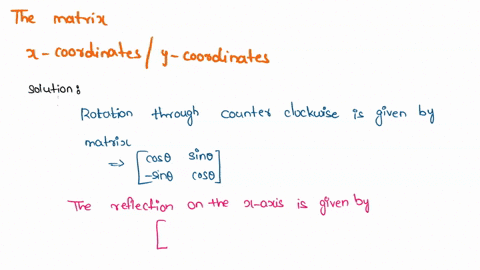 The matrix
x-coordinates / y-coordinates
solution:
Rotation through counter clockwise is given by
matrix
=> [cosθ sinθ
-sinθ cosθ]
The reflection on the x-axis is given by
[